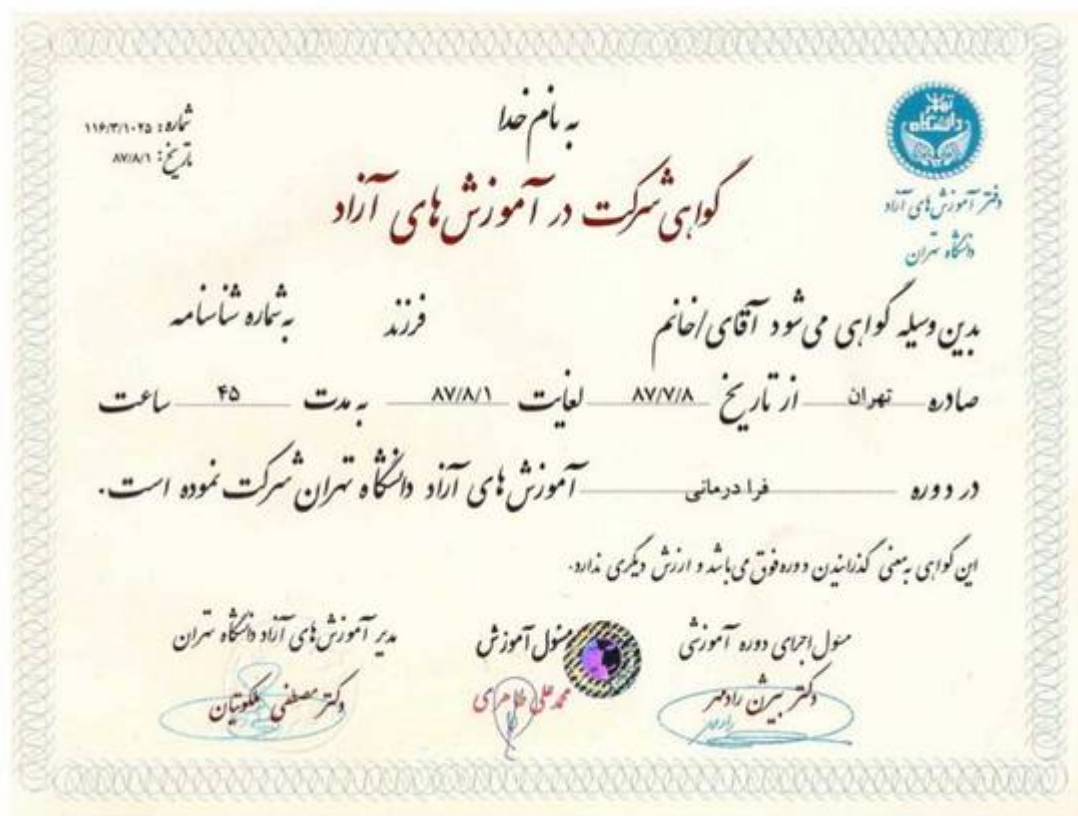 به نام خدا
شماره: ۱۱۶/۳/۱۰۲۵
تاریخ: ۸۷/۸/۱
دانشگاه تهران
دفتر آموزش های آزاد
دانشگاه تهران
گواهی شرکت در آموزش های آزاد
بدین وسیله گواهی می شود آقای/خانم فرزند به شماره شناسنامه
صادره تهران از تاریخ ۸۷/۷/۸ لغایت ۸۷/۸/۱ به مدت ۴۵ ساعت
در دوره فرا درمانی آموزش های آزاد دانشگاه تهران شرکت نموده است.
این گواهی به معنی گذرانیدن دوره فوق می باشد و ارزش دیگری ندارد.
مسئول اجرای دوره آموزشی
دکتر بیژن رادمهر
مسئول آموزش
محمد علی طاهری
مدیر آموزش های آزاد دانشگاه تهران
دکتر مصطفی ملکوتیان